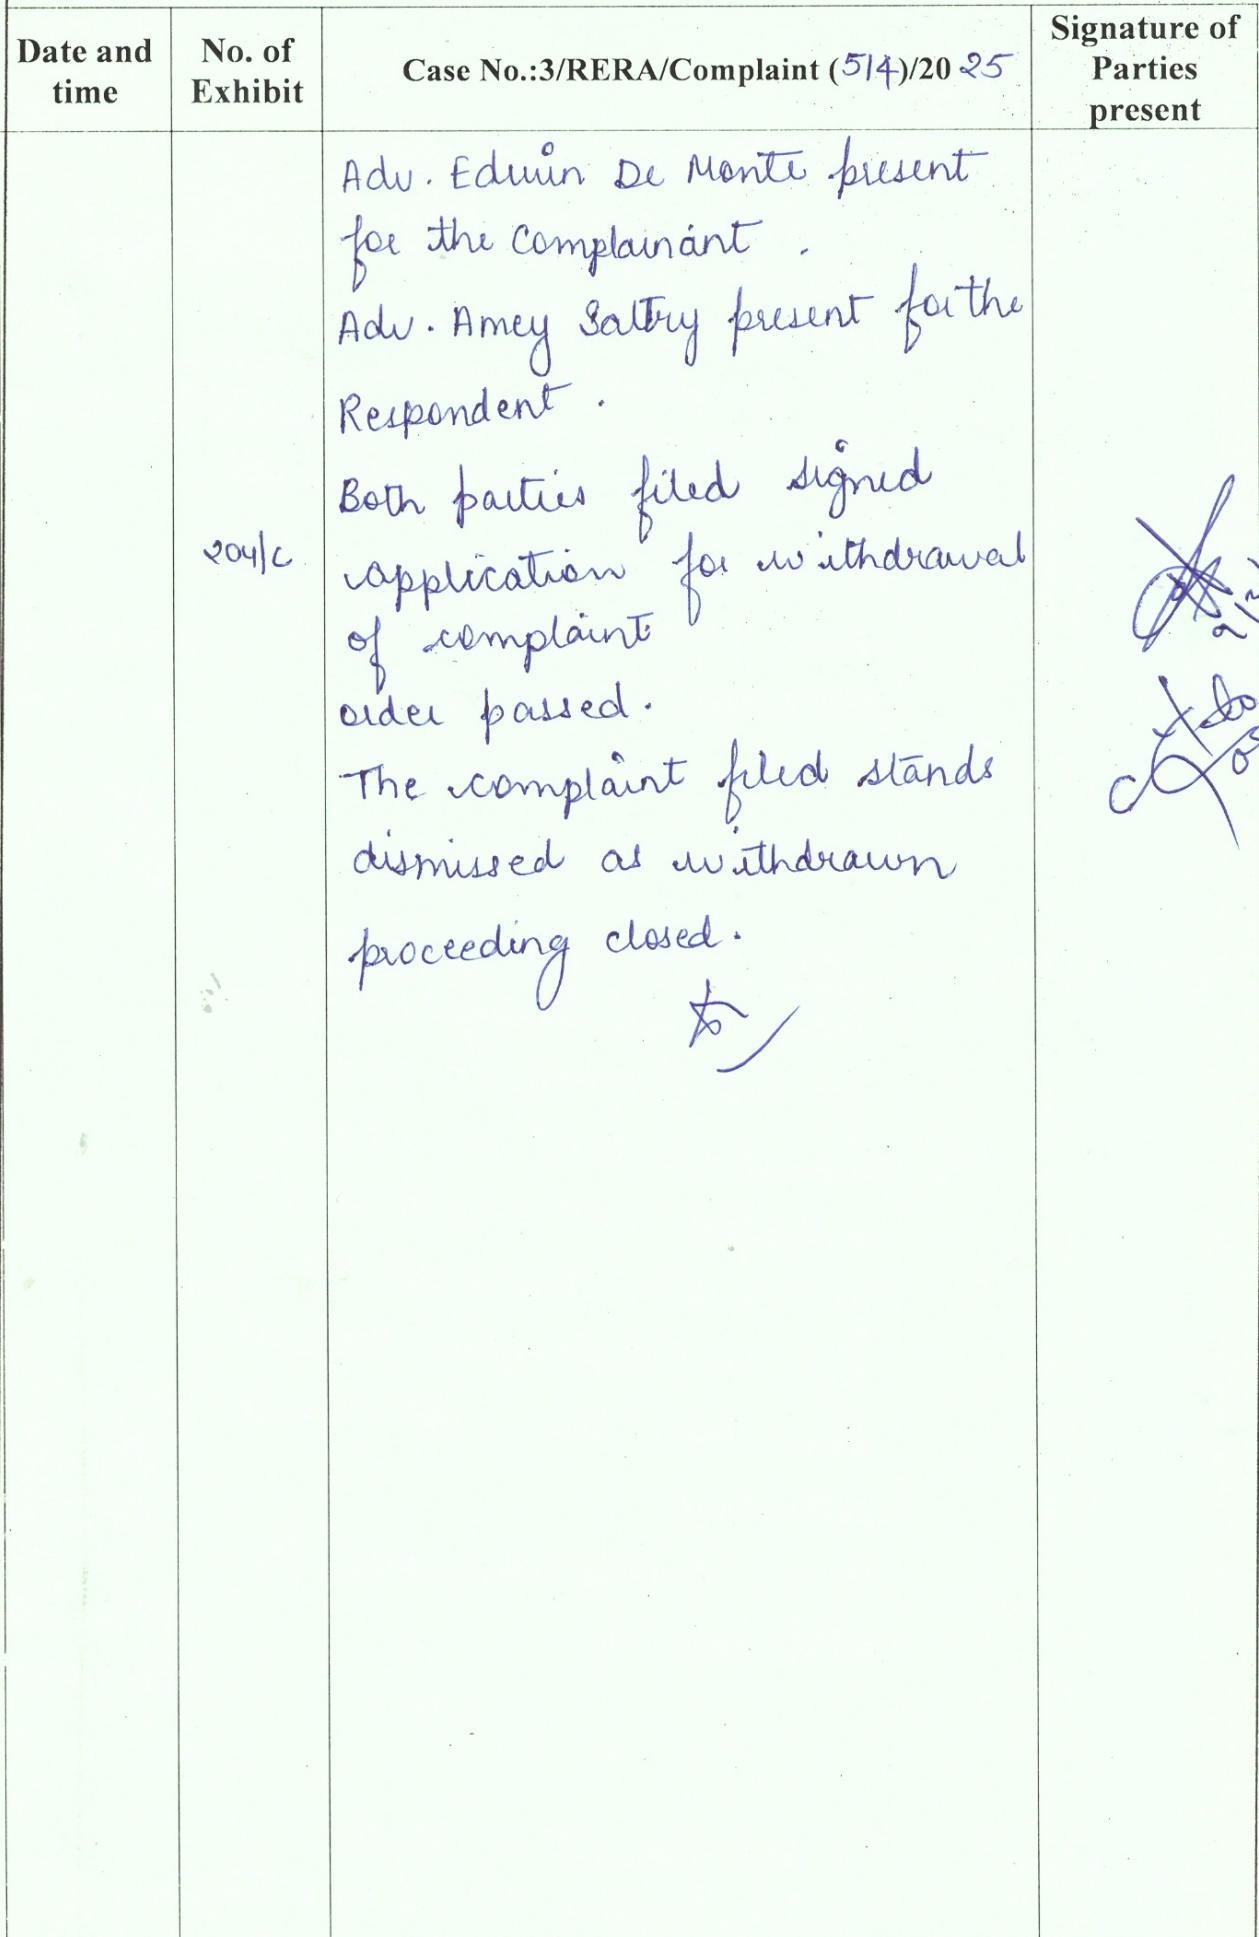 Date and time
No. of Exhibit
Case No.:3/RERA/Complaint (514)/2025
Signature of Parties present
Adv. Edwin De Monte present
for the Complainant.
Adv. Amey present for the
Respondent.
Both parties filed signed
204/C
application for withdrawal
of complaint
order passed.
The complaint filed stands
dismissed as withdrawn
proceeding closed.